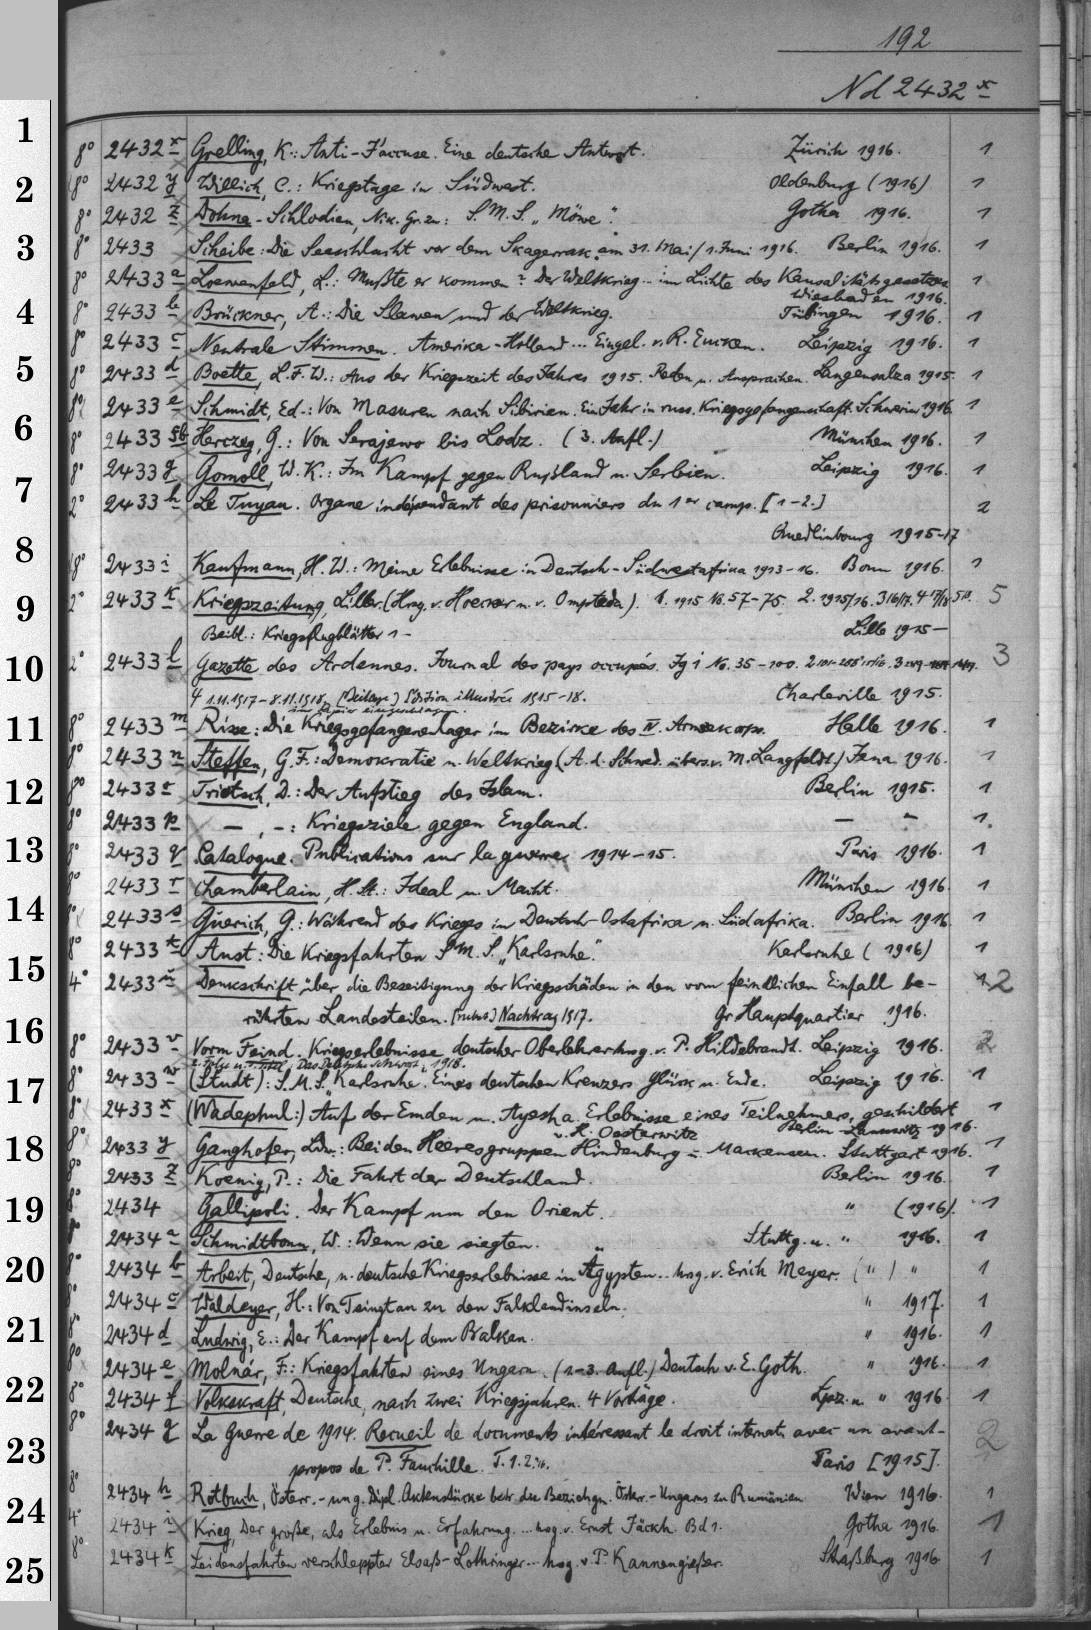 192
Nd 2432 x
1
8° 2432 x Grelling, K.: Anti-J'accuse. Eine deutsche Antwort. Zürich 1916. 1
2
8° 2432 y Willich, C.: Kriegstage in Südwest. Oldenburg (1916) 1
8° 2432 z Dohna-Schlodien, Nik. Gr. zu: S.M.S. „Möwe". Gotha 1916. 1
3
8° 2433 Scheibe: Die Seeschlacht vor dem Skagerrak am 31. Mai/1. Juni 1916. Berlin 1916. 1
8° 2433 a Loewenfeld, L.: Mußte er kommen? Der Weltkrieg... im Lichte des Kausalitätsgesetzes 1
Wiesbaden 1916.
4
8° 2433 b Brückner, A.: Die Slawen und der Weltkrieg. Tübingen 1916. 1
8° 2433 c Neutrale Stimmen. Amerika-Holland... Eingel. v. R. Eucken. Leipzig 1916. 1
5
8° 2433 d Boette, L.F.W.: Aus der Kriegszeit des Jahres 1915. Reden u. Ansprachen. Langensalza 1915. 1
8° 2433 e Schmidt, Ed.: Von Masuren nach Sibirien. Ein Jahr in russ. Kriegsgefangenschaft. Schwerin 1916. 1
6
8° 2433 Herczeg, G.: Von Serajewo bis Lodz. (3. Aufl.) München 1916. 1
8° 2433 g Gomoll, W.K.: Im Kampf gegen Rußland u. Serbien. Leipzig 1916. 1
7
2° 2433 h Le Tuyau. Organe indépendant des prisonniers du 1er camp. [1-2.] 2
Quedlinbourg 1915-17
8
8° 2433 i Kaufmann, H.W.: Meine Erlebnisse in Deutsch-Südwestafrika 1913-16. Bonn 1916. 1
9
2° 2433 k Kriegszeitung, Liller. (Hrsg. v. Hoecker u. v. Ompteda). 1. 1915 No. 57-75. 2. 1915/16. 3 16/17. 4 17/18 5
Beibl.: Kriegsflugblätter 1- Lille 1915-
10
2° 2433 l Gazette des Ardennes. Journal des pays occupés. Jg 1 No. 35-100. 3
4 1.11.1917-8.11.1918, (Beilage) Edition illustrée 1915-18. Charleville 1915.
11
8° 2433 m Risse: Die Kriegsgefangenenlager im Bezirke des IV. Armeekorps. Halle 1916. 1
8° 2433 n Steffen, G.F.: Demokratie u. Weltkrieg (A. d. Schwed. übers. v. M. Langfeldt.) Jena 1916. 1
12
8° 2433 o Trietsch, D.: Der Aufstieg des Islam. Berlin 1915. 1
8° 2433 p —, -: Kriegsziele gegen England. — " 1.
13
8° 2433 q Catalogue. Publications sur la guerre 1914-15. Paris 1916. 1
8° 2433 r Chamberlain, H. St.: Ideal u. Macht. München 1916. 1
14
8° 2433 s Guerich, G.: Während des Krieges in Deutsch-Ostafrika u. Südafrika. Berlin 1916 1
8° 2433 t Aust: Die Kriegsfahrten S.M.S. „Karlsruhe". Karlsruhe (1916) 1
15
4° 2433 u Denkschrift über die Beseitigung der Kriegsschäden in den vom feindlichen Einfall be- 2
16
rührten Landesteilen. Nachtrag 1917. Gr. Hauptquartier 1916.
8° 2433 v Vorm Feind. Kriegserlebnisse deutscher Oberlehrer hrsg. v. P. Hildebrandt. Leipzig 1916. 2
17
8° 2433 w (Studt): S.M.S. Karlsruhe. Eines deutschen Kreuzers Glück u. Ende. Leipzig 1916. 1
8° 2433 x (Wadephul:) Auf der Emden u. Ayesha. Erlebnisse eines Teilnehmers, geschildert 1
v. H. Oosterwitz Berlin-Lankwitz 1916.
18
8° 2433 y Ganghofer, Ldw.: Bei den Heeresgruppen Hindenburg u. Mackensen. Stuttgart 1916. 1
8° 2433 z Koenig, P.: Die Fahrt der Deutschland. Berlin 1916. 1
19
8° 2434 Gallipoli. Der Kampf um den Orient. " (1916). 1
8° 2434 a Schmidtbonn, W.: Wenn sie siegten. Stuttg. u. " 1916. 1
20
8° 2434 b Arbeit, Deutsche, u. deutsche Kriegserlebnisse in Ägypten... hrsg. v. Erich Meyer. (") " 1
8° 2434 c Waldeyer, H.: Von Tsingtau zu den Falklandinseln. " 1917. 1
21
8° 2434 d Ludwig, E.: Der Kampf auf dem Balkan. " 1916. 1
8° 2434 e Molnár, F.: Kriegsfahrten eines Ungarn. (2-3. Aufl.) Deutsch v. E. Goth. " 1916. 1
22
8° 2434 f Volkskraft, Deutsche, nach zwei Kriegsjahren. 4 Vorträge. Lpz. u. " 1916. 1
8° 2434 g La Guerre de 1914. Recueil de documents intéressant le droit internat. avec un avant- 2
23
propos de P. Fauchille. T. 1.2. Paris [1915].
8° 2434 h Rotbuch, Österr.-ung. Dipl. Aktenstücke betr. die Beziehgn. Österr.-Ungarns zu Rumänien Wien 1916. 1
24
4° 2434 i Krieg, Der große, als Erlebnis u. Erfahrung... hrsg. v. Ernst Jäckh. Bd 1. Gotha 1916. 1
8° 2434 k Leidensfahrten verschleppter Elsaß-Lothringer... hrsg. v. P. Kannengießer. Straßburg 1916 1
25